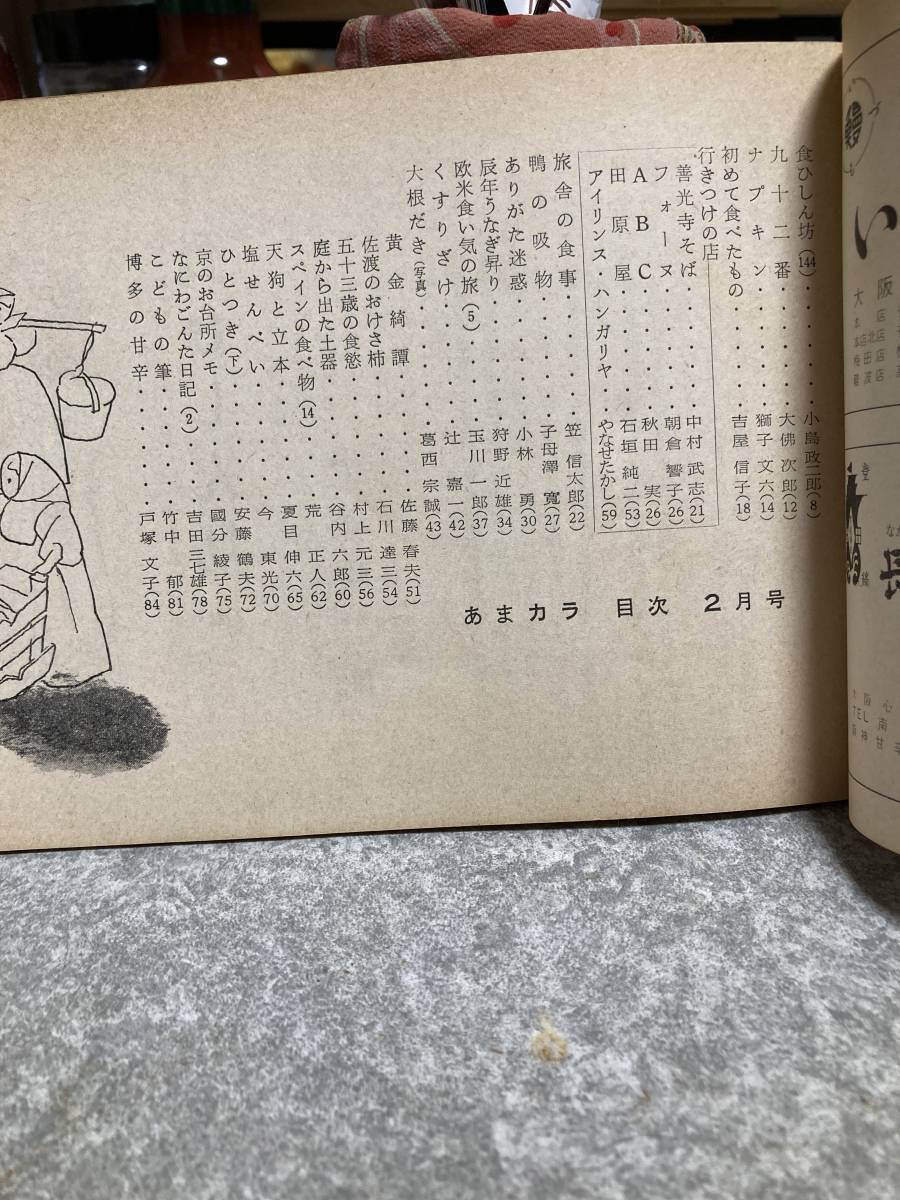 食ひしん坊(144)・・・・・小島政二郎(8)
九十二番・・・・・大佛次郎(12)
ナプキン・・・・・獅子文六(14)
初めて食べたもの・・・・・吉屋信子(18)
行きつけの店
善光寺そば・・・・・中村武志(21)
フォーヌ・・・・・朝倉響子(26)
ABC・・・・・秋田実(26)
田原屋・・・・・石垣純二(53)
アイリンス・ハンガリヤ・・やなせたかし(59)
旅舎の食事・・・・・笠信太郎(22)
鴨の吸物・・・・・子母澤寛(27)
ありがた迷惑・・・・・小林勇(30)
辰年うなぎ昇り・・・・・狩野近雄(34)
欧米食い気の旅(5)・・・・・玉川一郎(37)
くすりざけ・・・・・辻嘉一(42)
大根だき(写真)・・・・・葛西宗誠(43)
黄金綺譚・・・・・佐藤春夫(51)
佐渡のおけさ柿・・・・・石川達三(54)
五十三歳の食慾・・・・・村上元三(56)
庭から出た土器・・・・・谷内六郎(60)
スペインの食べ物(14)・・・・・荒正人(62)
天狗と立本・・・・・夏目伸六(65)
塩せんべい・・・・・今東光(70)
ひとつき(下)・・・・・安藤鶴夫(72)
京のお台所メモ・・・・・國分綾子(75)
なにわごんた日記(2)・・・・・吉田三七雄(78)
こどもの筆・・・・・竹中郁(81)
博多の甘辛・・・・・戸塚文子(84)
あまカラ 目次 2月号